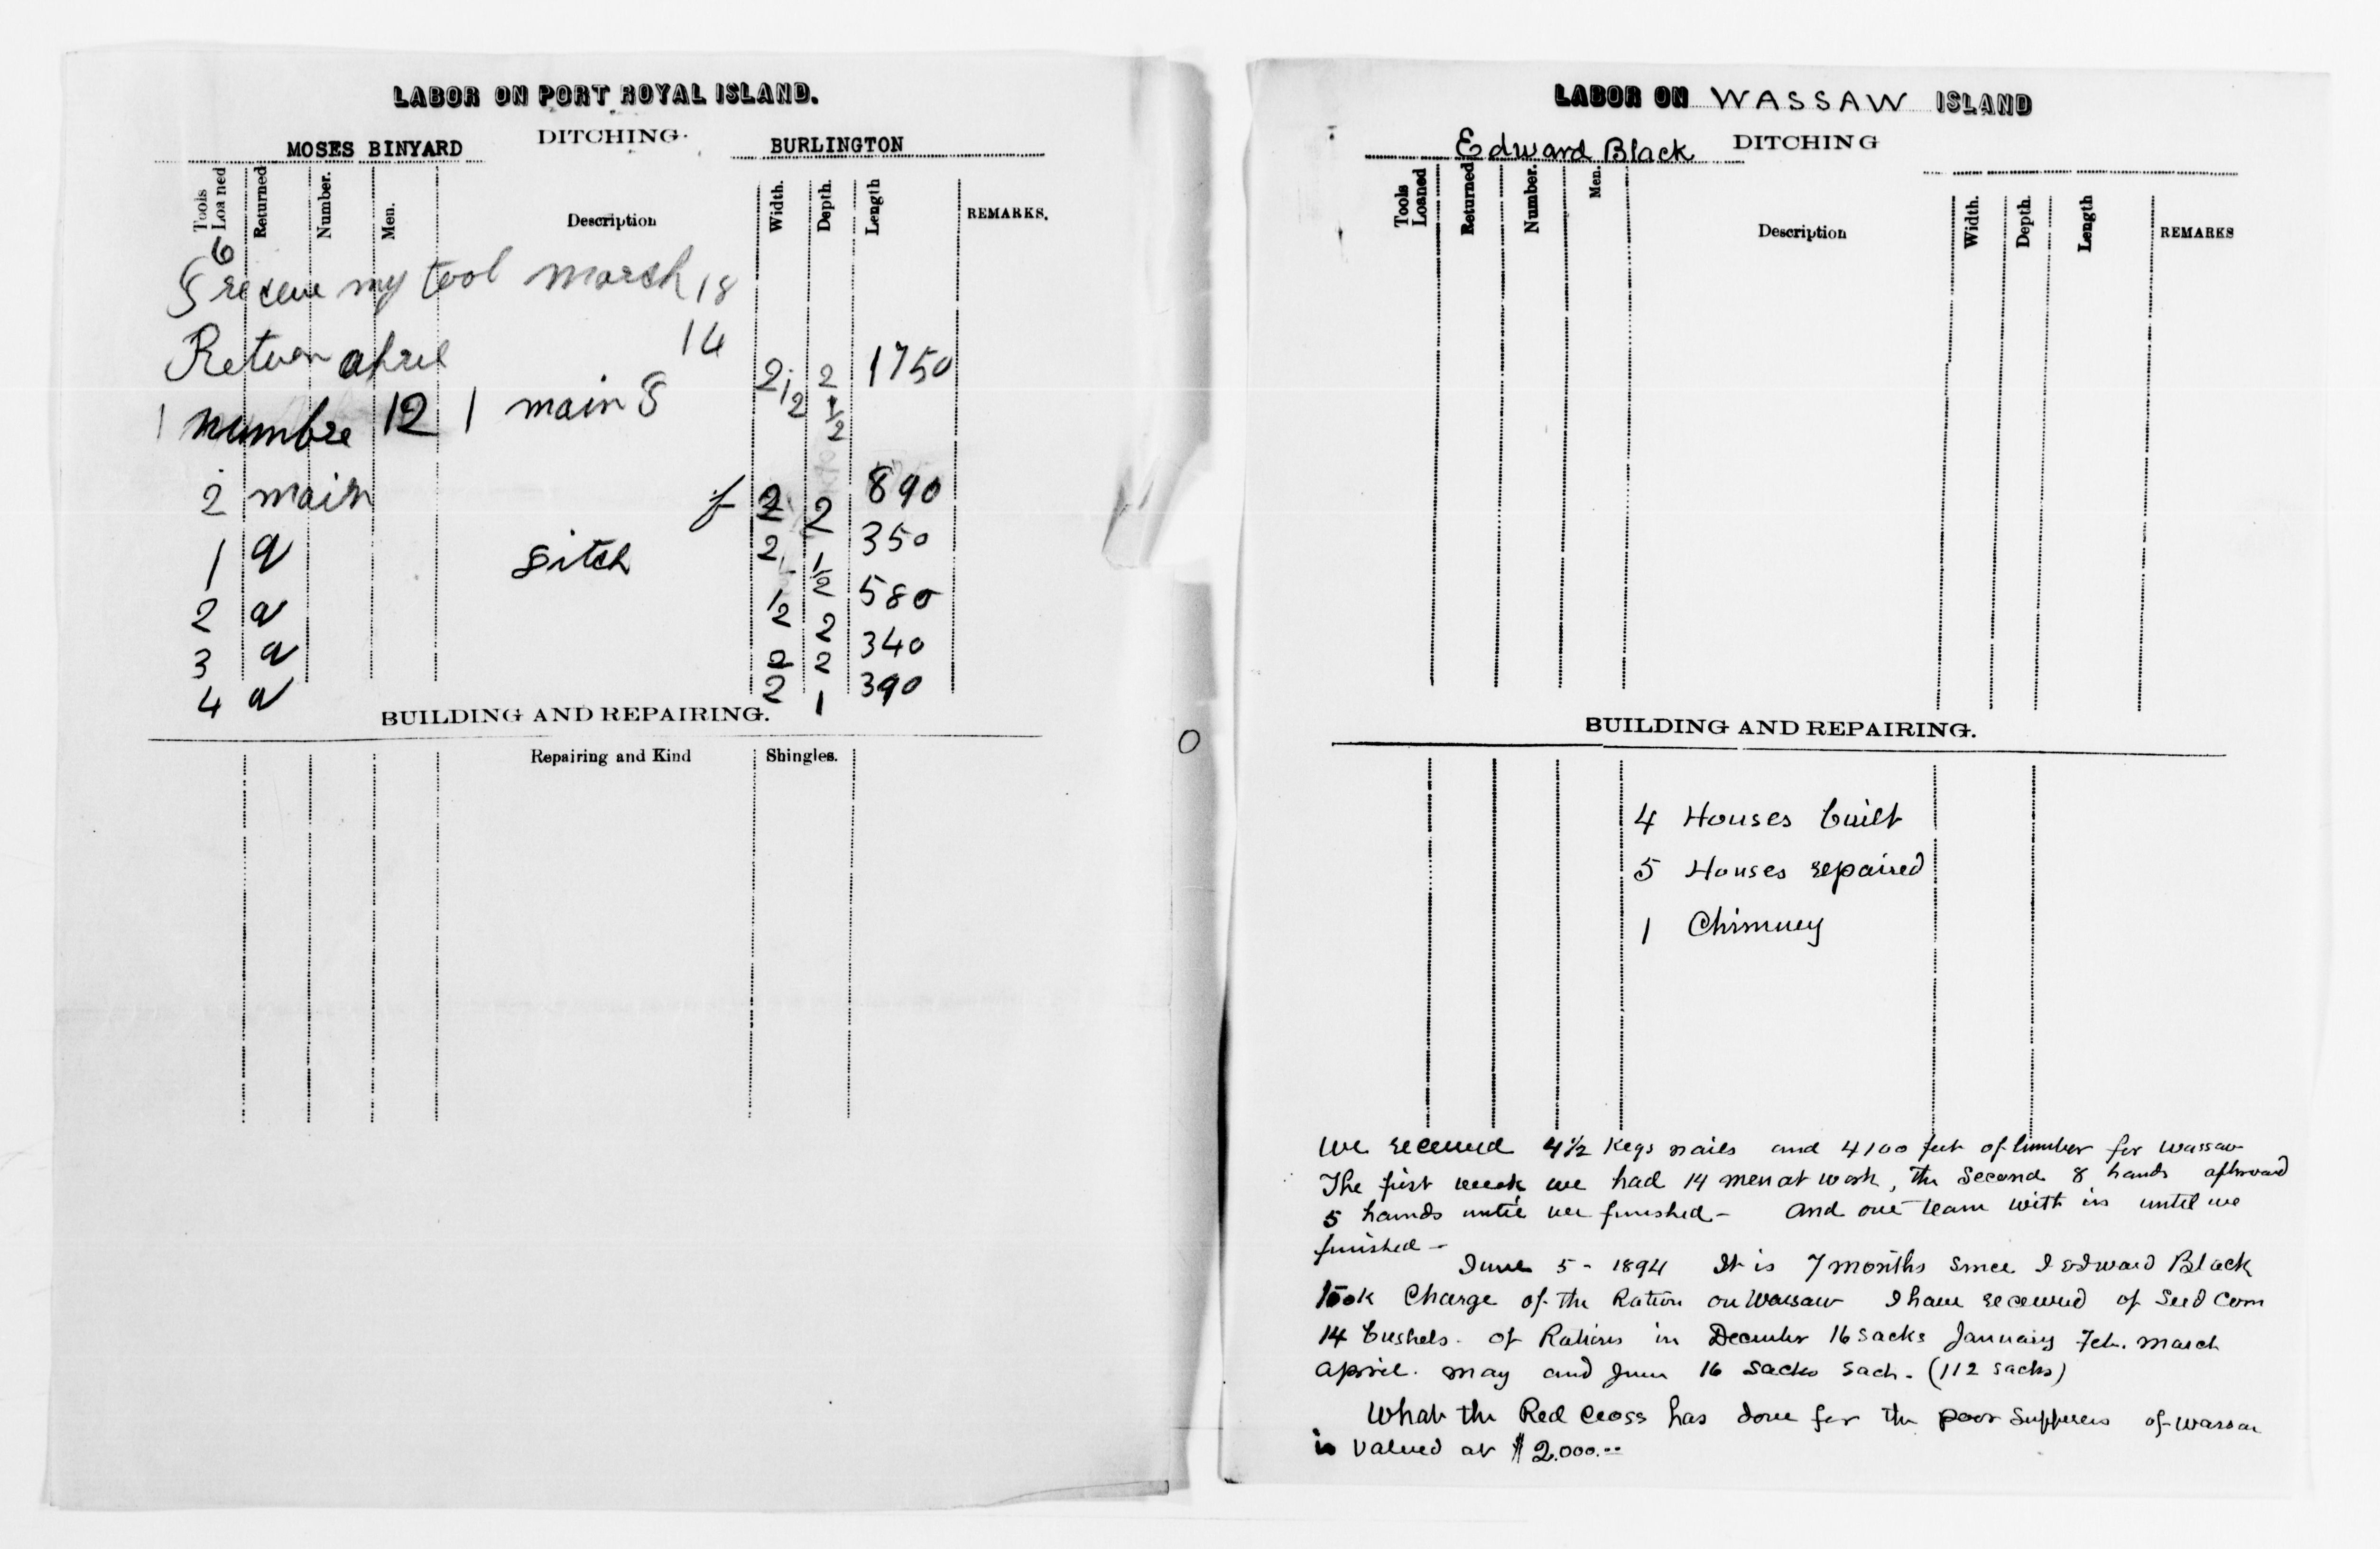 LABOR ON PORT ROYAL ISLAND.
DITCHING.
MOSES BINYARD
BURLINGTON
Tools Loaned
Returned
Number.
Men.
Description
Width.
Depth.
Length
REMARKS.
6
receve my tool march 18
Return april 14
1 numbre 12 1 main 2 1/2 2 1/2 1750
2 main 2 2 890
1 a 2 1/2 350
2 a 1/2 2 580
3 a 2 2 340
4 a 2 1 390
BUILDING AND REPAIRING.
Repairing and Kind
Shingles.
LABOR ON WASSAW ISLAND
DITCHING
Edward Black
Tools Loaned
Returned
Number.
Men.
Description
Width.
Depth.
Length
REMARKS
BUILDING AND REPAIRING.
4 Houses built
5 Houses repaired
1 Chimney
We received 4½ Kegs nails and 4100 feet of lumber for Wassaw
The first week we had 14 men at work, the Second 8 hands afterward
5 hands until we finished - And one team with us until we
finished -
June 5 - 1894 It is 7 months since I Edward Black
took Charge of the Ration on Wassaw I have received of Seed Corn
14 bushels. of Rations in December 16 sacks January Feb. March
April. May and June 16 Sacks Each. (112 sacks)
What the Red Cross has done for the poor Sufferers of Wassaw
is valued at $2.000.00